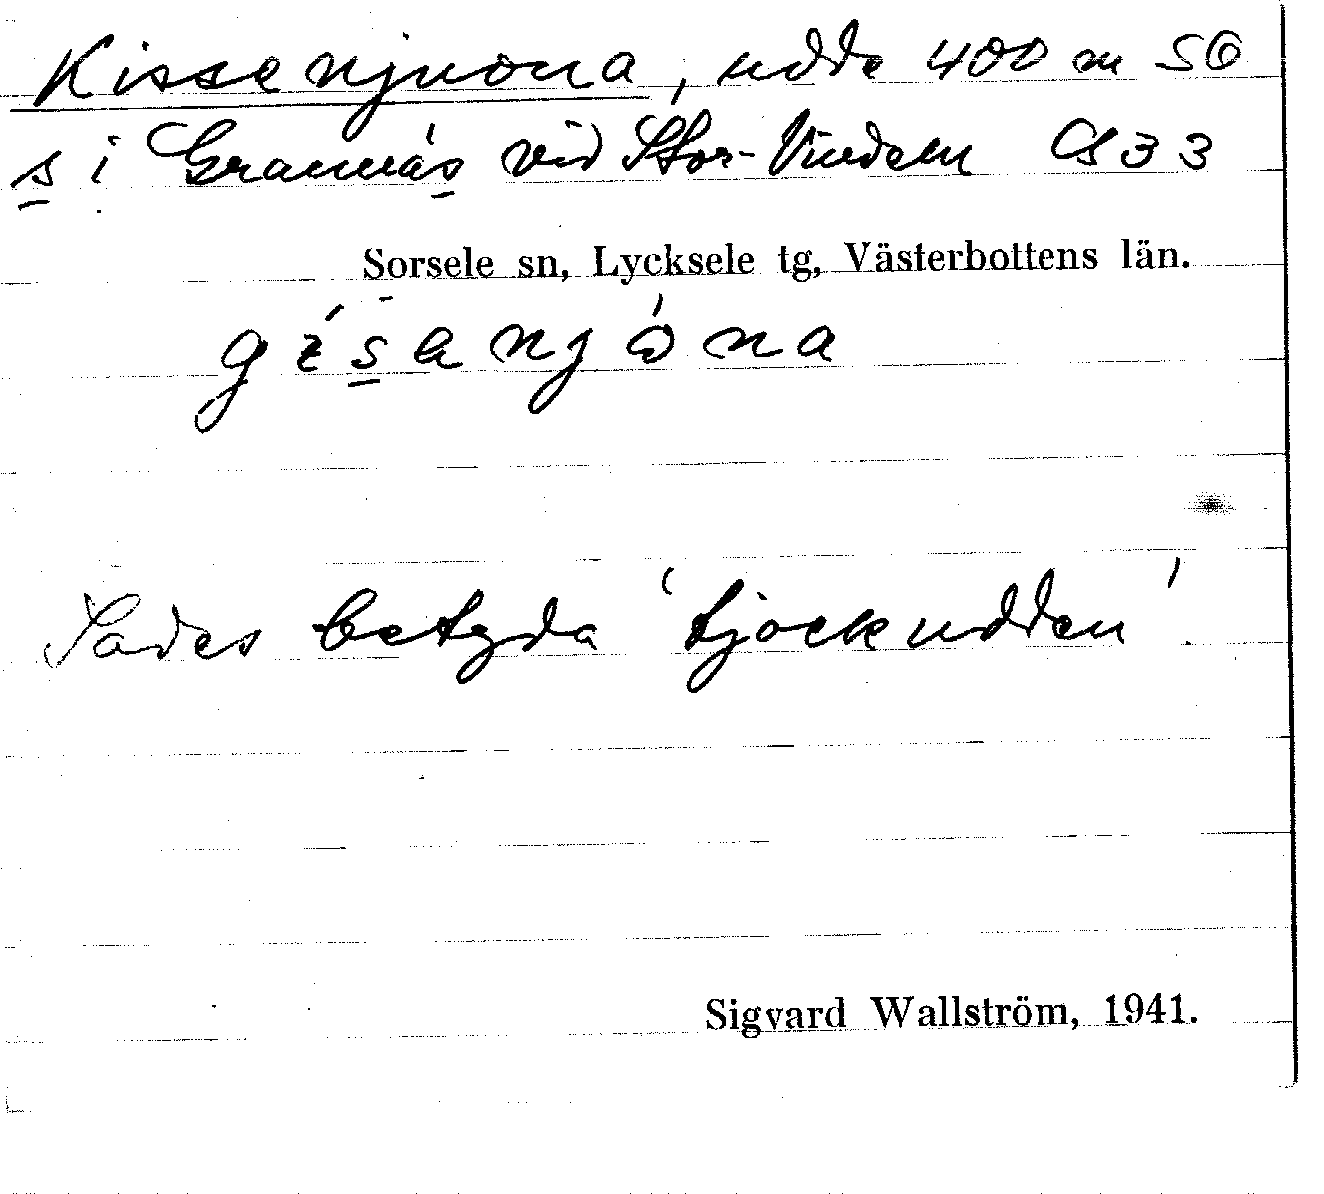 Kissenjuona, udde 400 m SO
s i Grannäs vid Stor-Vindeln Cs 33
Sorsele sn, Lycksele tg, Västerbottens län.
Sades betyda 'tjockudden'.
Sigvard Wallström, 1941.